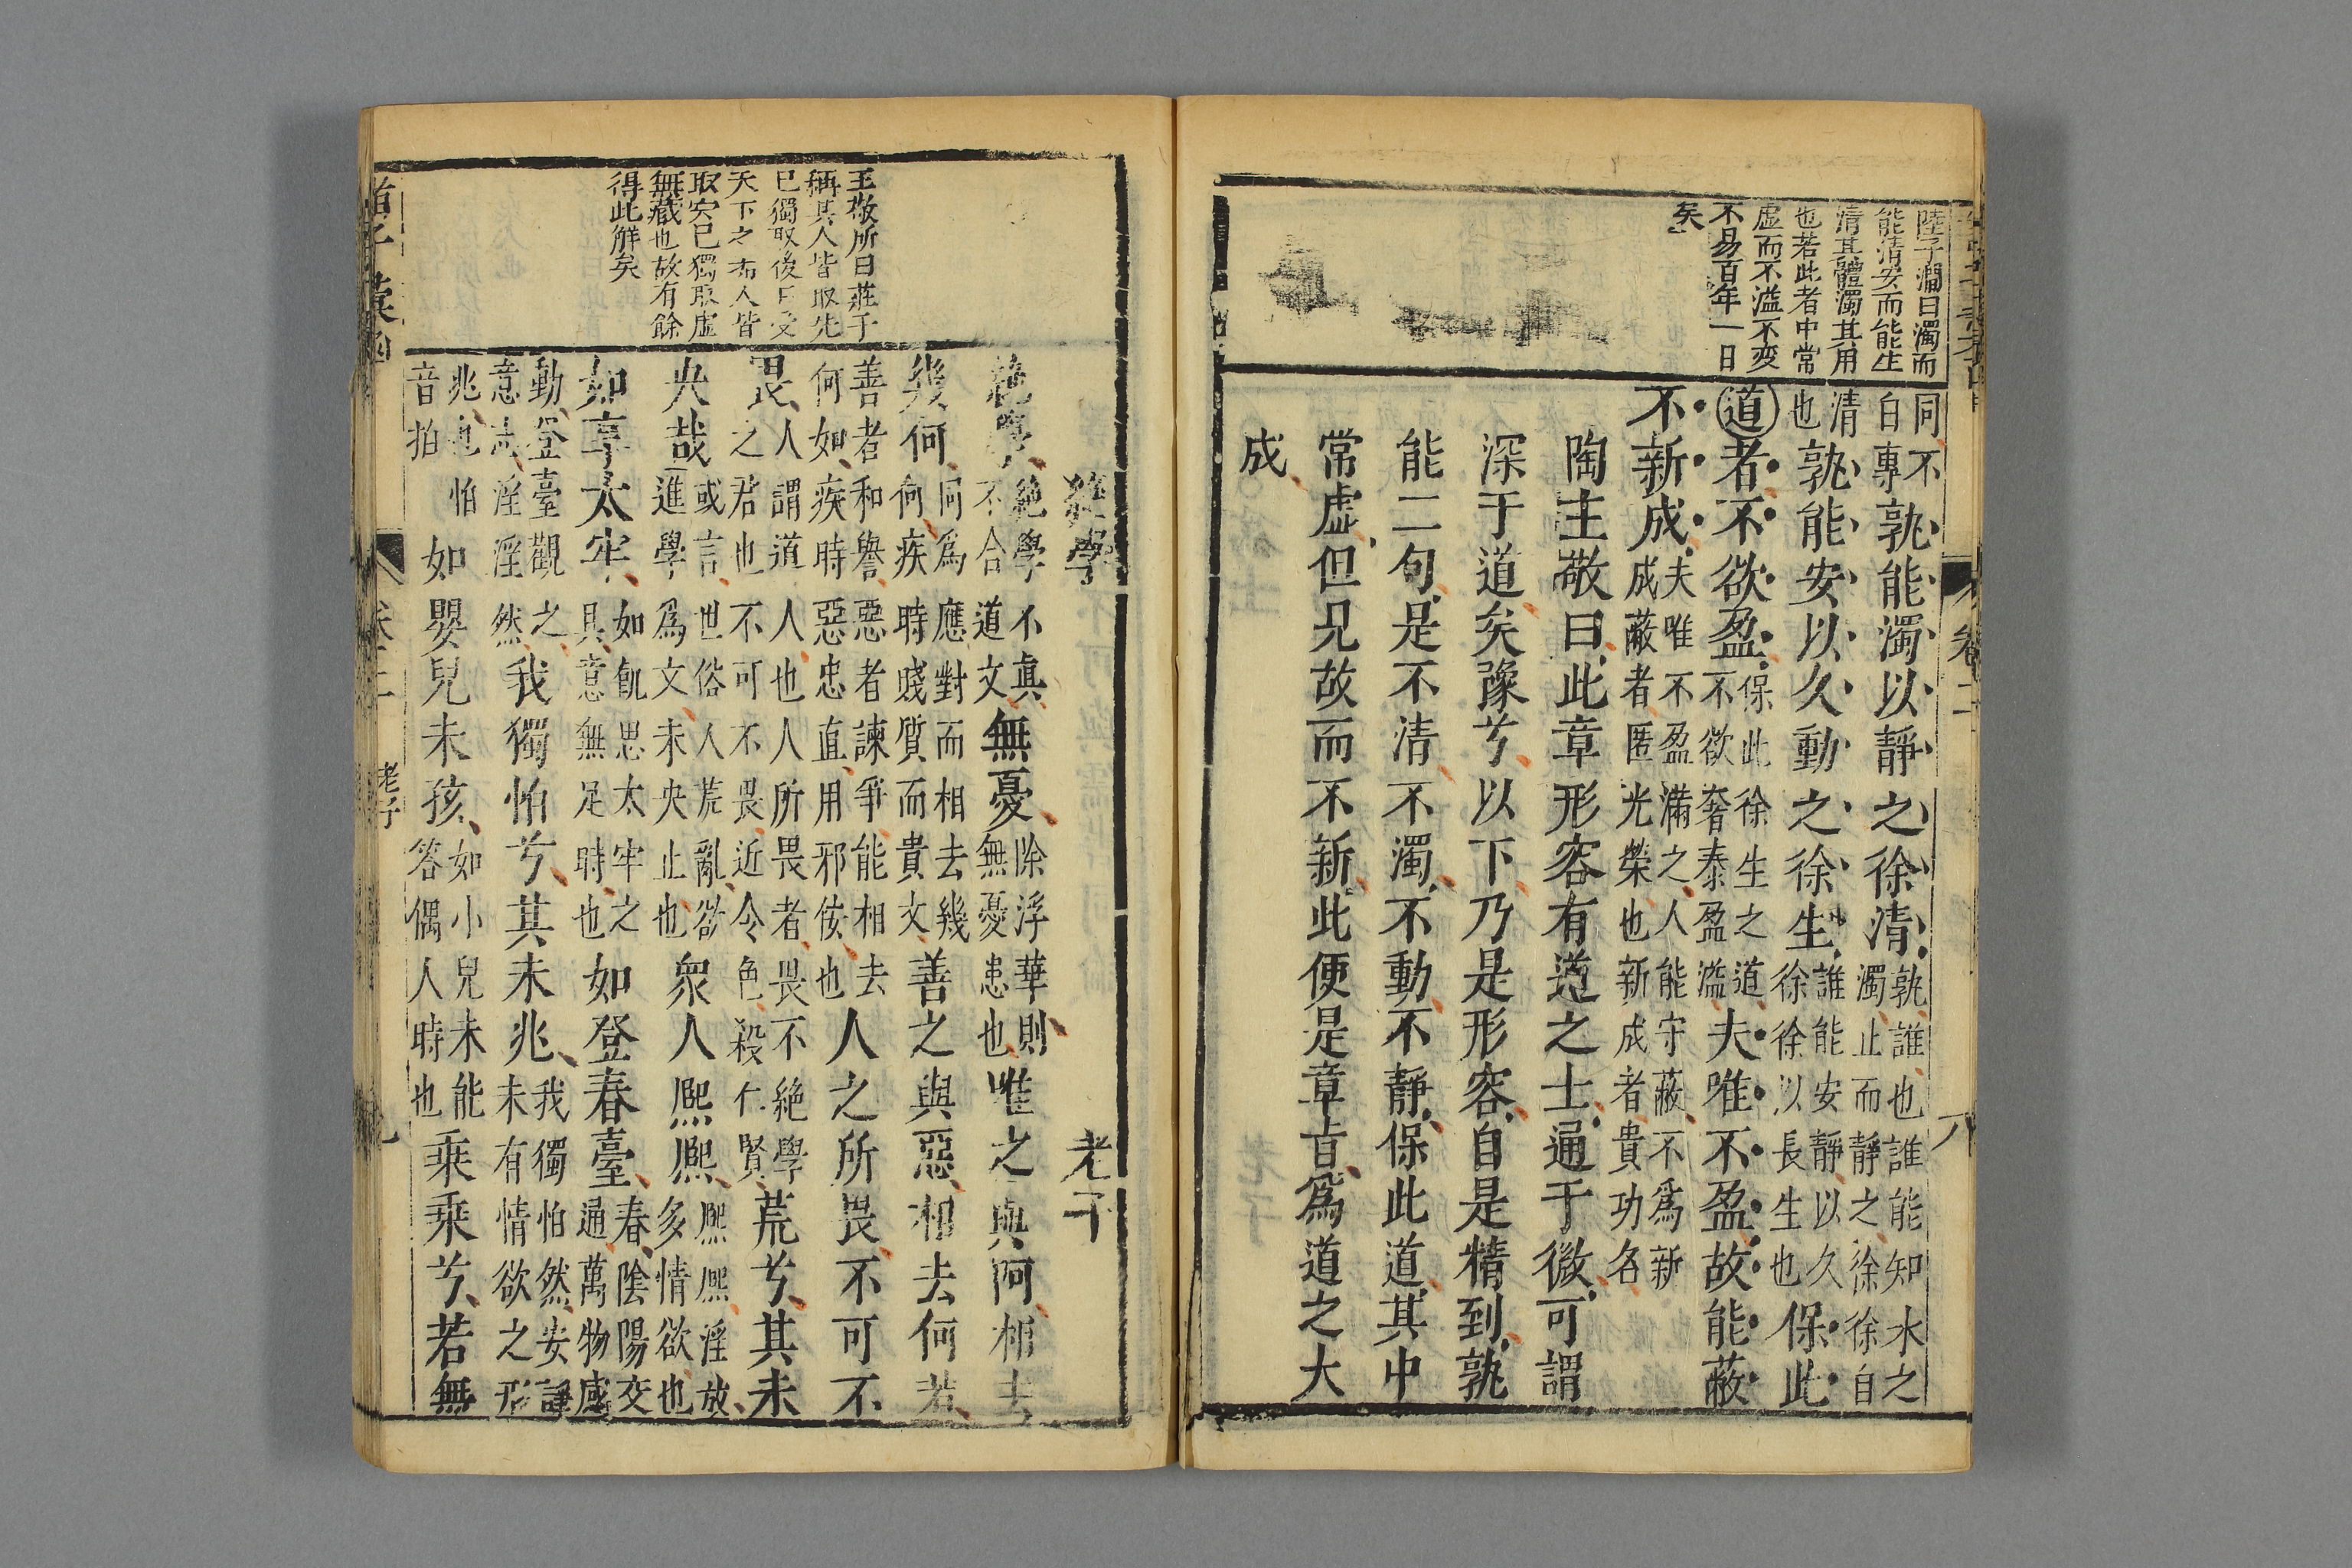 陸子淵曰濁而
能清安而能生
清其體濁其用
也若此者中常
虛而不溢不變
不易百年一日
矣
卷二
八
同不
自專
孰能濁以靜之徐清
孰誰也誰能知水之
濁止而靜之徐徐自
清
也
孰能安以久動之徐生
誰能安靜以久
徐徐以長生也
保此
道者不欲盈
保此徐生之道
不欲奢泰盈溢
夫唯不盈故能蔽
不新成
夫唯不盈滿之人能守蔽不為新
成蔽者匿光榮也新成者貴功名
陶主敬曰此章形容有道之士通于微可謂
深于道矣豫兮以下乃是形容自是精到孰
能二句是不清不濁不動不靜保此道其中
常虛但見故而不新此便是章旨爲道之大
成
王敬所曰莊子
稱其人皆取先
已獨取後曰受
天下之垢人皆
取實已獨取虛
無藏也故有餘
得此解矣
老子
絕學
絕學不真
不合道文
無憂
除浮華則
無憂患也
唯之與阿相去
幾何
同爲應對而相去幾
何疾時賤質而貴文
善之與惡相去何若
善者和譽惡者諫爭能相去
何如疾時惡忠直用邪佞也
人之所畏不可不
畏
人謂道人也人所畏者畏不絕學
之君也不可不畏近令色殺仁賢
荒兮其未
央哉
或言世俗人荒亂欲
進學爲文未央止也
衆人熙熙
熙熙淫放
多情欲也
如享太牢
如飢思太牢之
具意無足時也
如登春臺
春陰陽交
通萬物感
動登臺觀之
意志淫淫然
我獨怕兮其未兆
我獨怕然安靜
未有情欲之形
兆也
怕
音拍
如嬰兒未孩
如小兒未能
答偶人時也
乘乘兮若無
老子